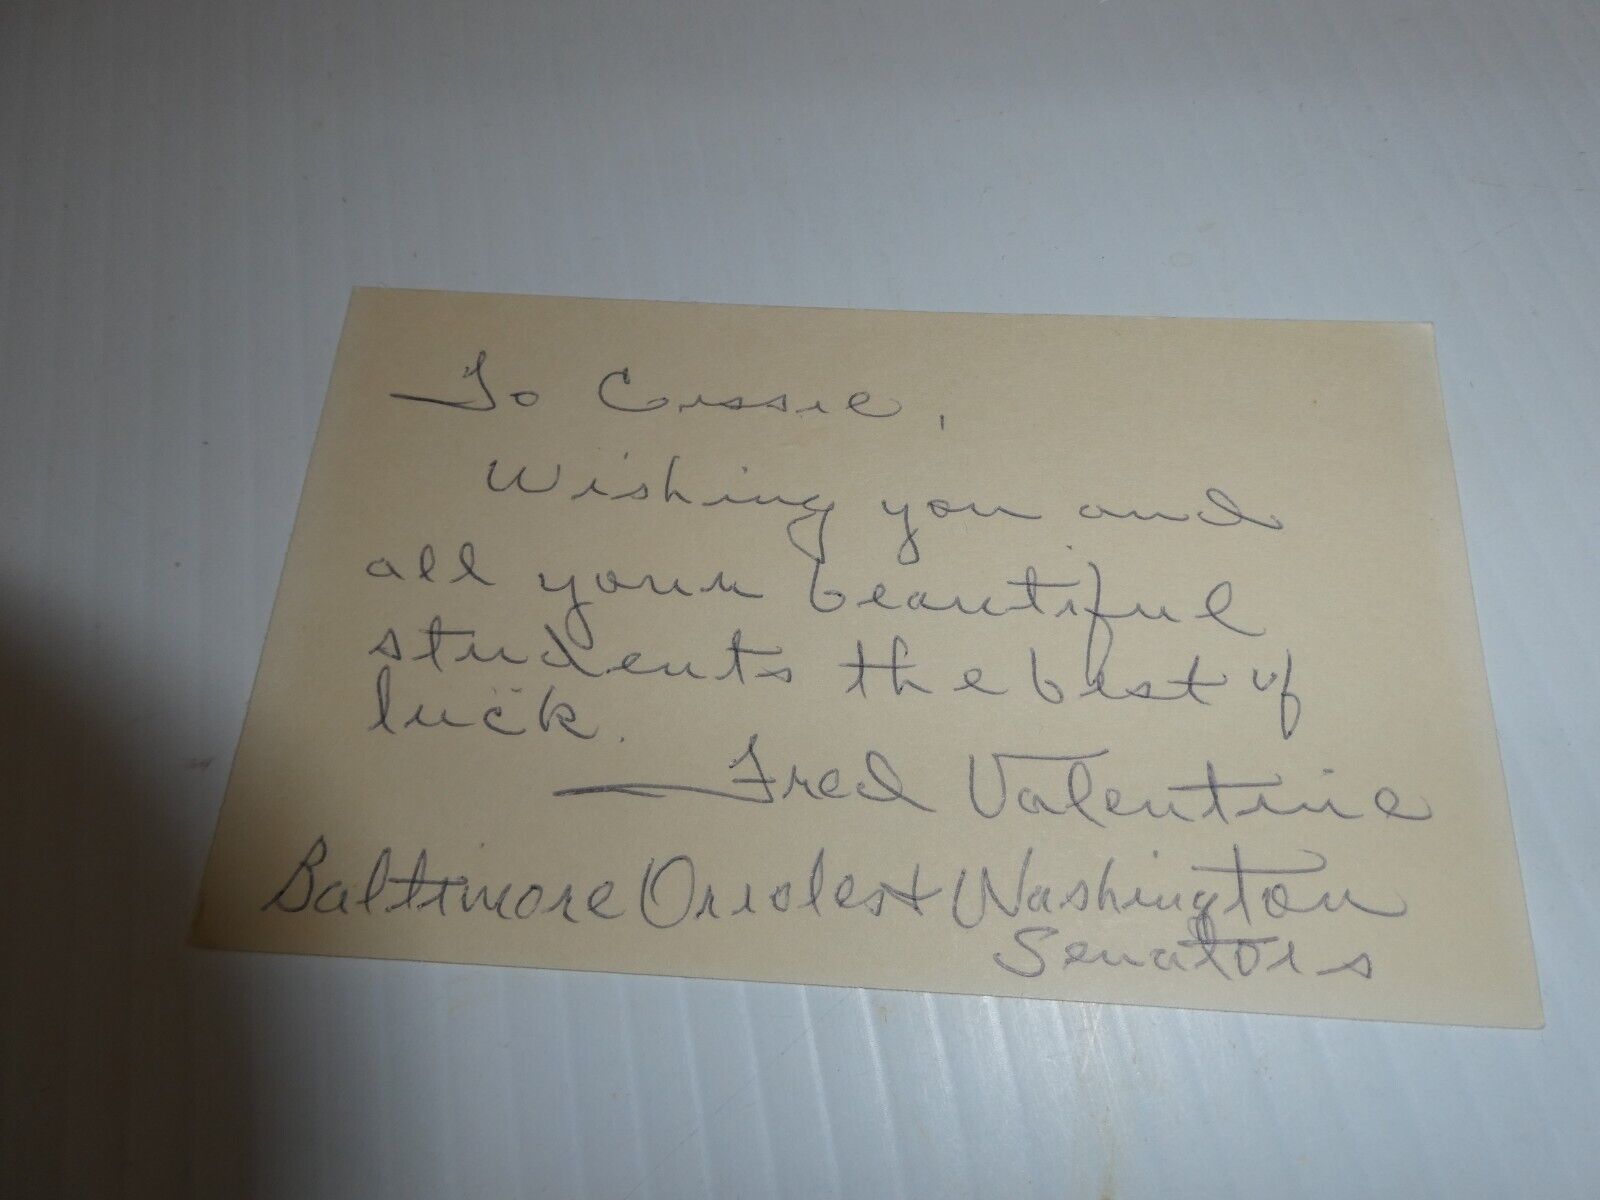 To Cissie,
Wishing you and
all your beautiful
students the best of
luck.
Fred Valentine
Baltimore Orioles + Washington
Senators